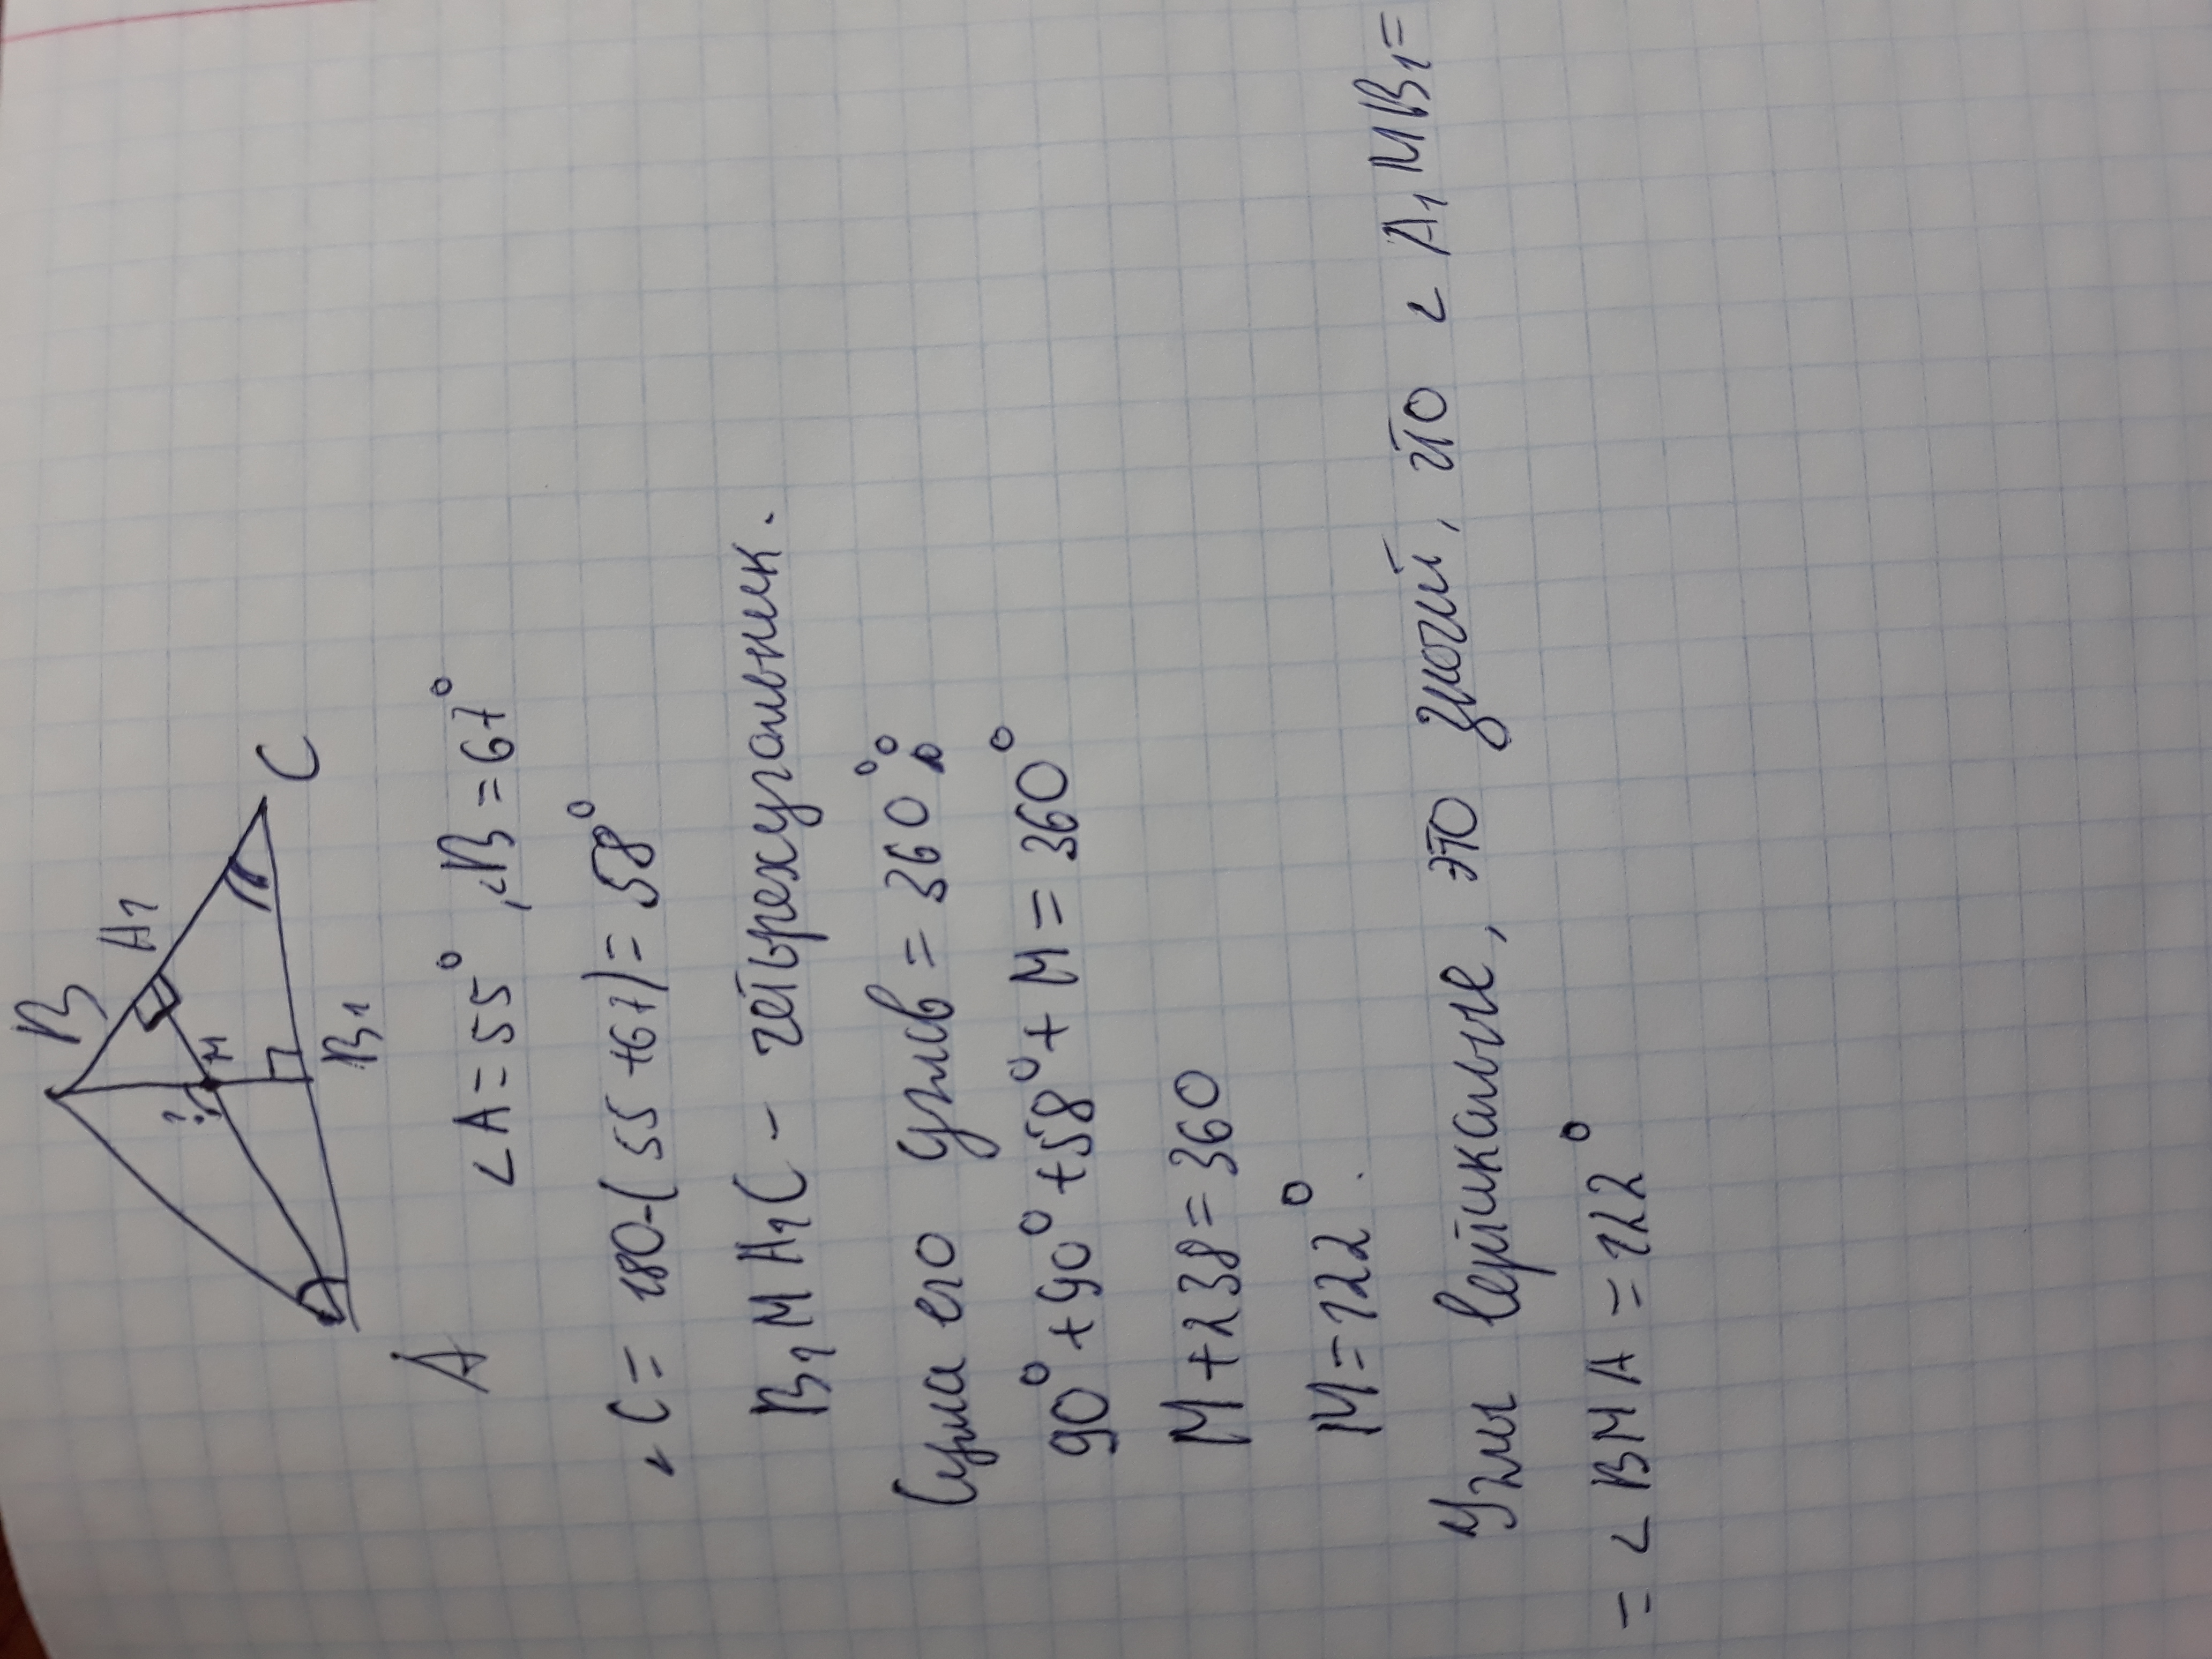 B
A1
C
?
M
B1
A
∠A = 55°, ∠B = 67°
∠C = 180-(55+67) = 58°
B1MA1C - четырехугольник.
Сума его углов = 360°
90° + 90° + 58° + M = 360°
M + 238 = 360
M = 122°.
Углы вертикальные, это значит, что ∠A1MB1 =
= ∠BMA = 122°